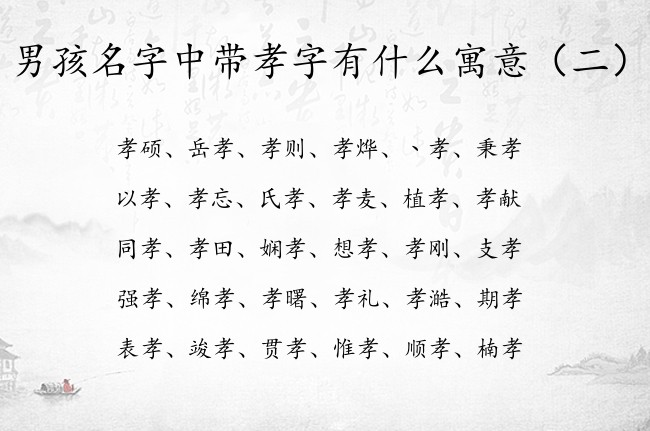 男孩名字中带孝字有什么寓意（二）
孝硕、岳孝、孝则、孝烨、丶孝、秉孝
以孝、孝忘、氏孝、孝麦、植孝、孝献
同孝、孝田、娴孝、想孝、孝刚、支孝
强孝、绵孝、孝曙、孝礼、孝澔、期孝
表孝、竣孝、贯孝、惟孝、顺孝、楠孝